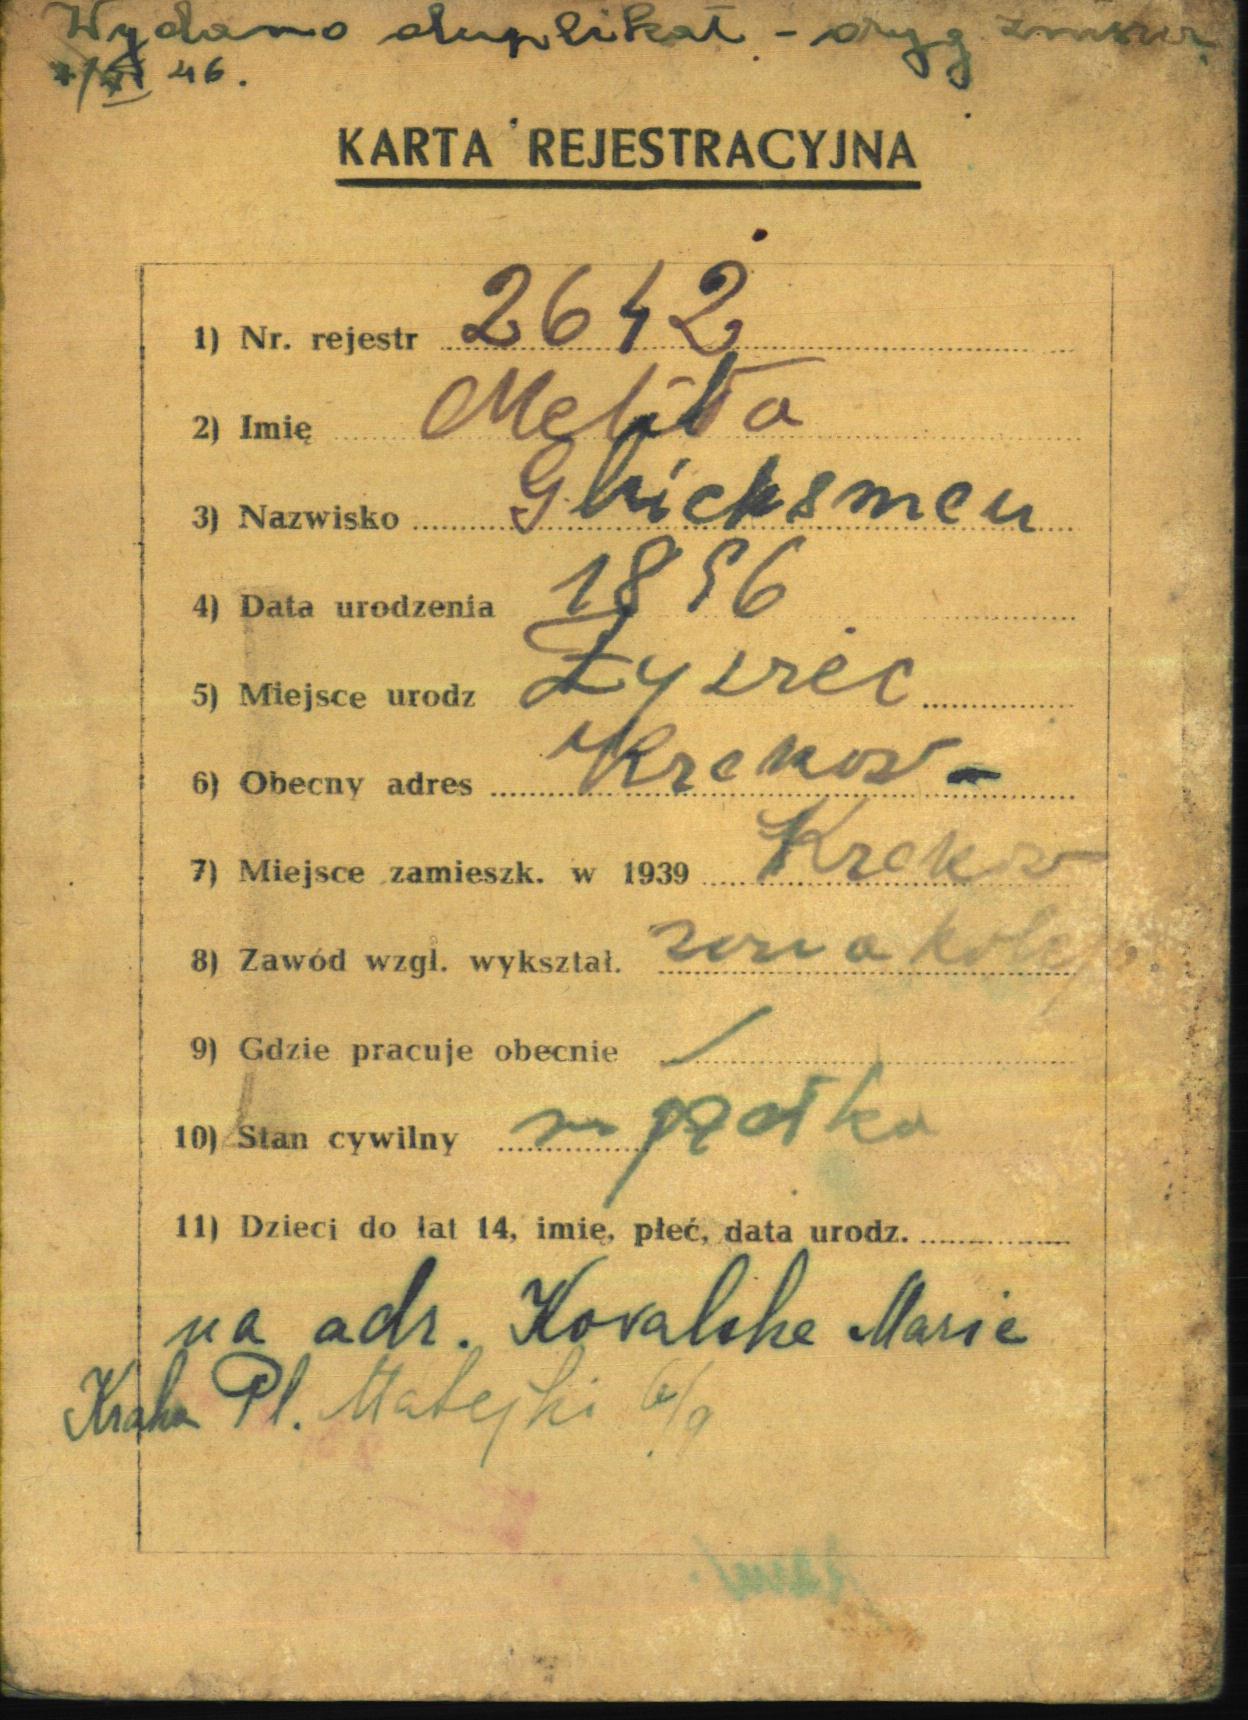 Wydano duplikat - oryg
XI 46.
KARTA REJESTRACYJNA
1) Nr. rejestr 2642
2) Imię Melitta
3) Nazwisko Glücksman
4) Data urodzenia 1896
5) Miejsce urodz Żywiec
6) Obecny adres Krakow -
7) Miejsce zamieszk. w 1939 Krakow
8) Zawód wzgl. wykształ. żona kolej.
9) Gdzie pracuje obecnie /
10) Stan cywilny mężatka
11) Dzieci do lat 14, imię, płeć, data urodz.
na adr. Kowalska Maria
Krakow Pl. Matejki 6/9